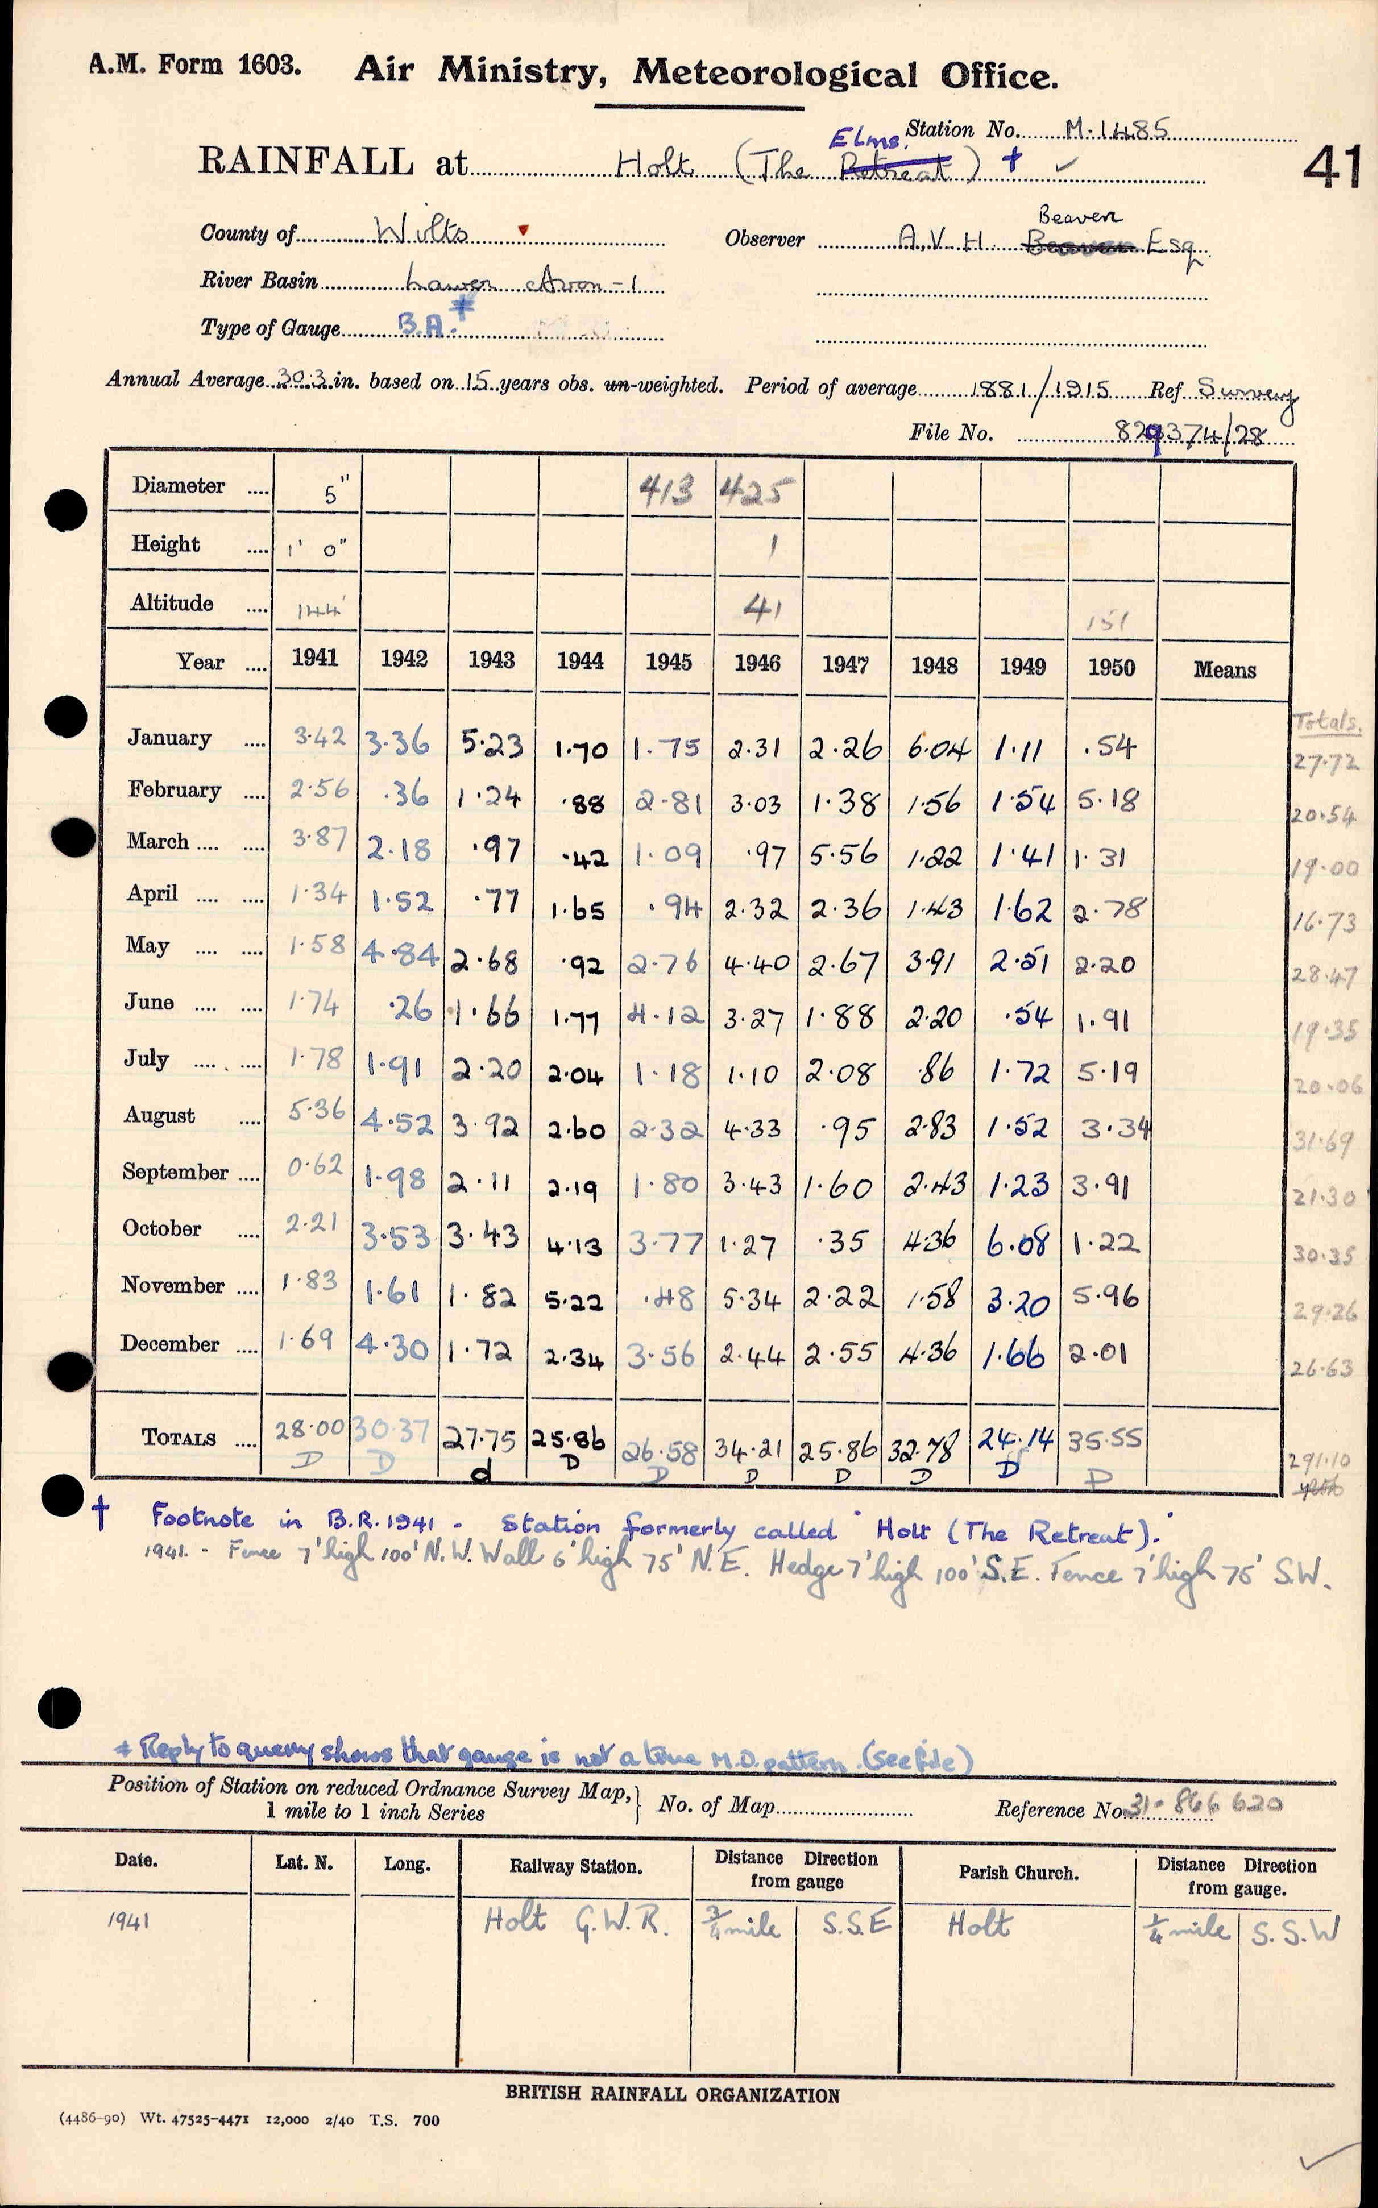 A.M. Form 1603. Air Ministry, Meteorological Office.
Station No. M.1485
41
Elms.
RAINFALL at Holt (The Retreat) † ✓
Beaven
County of Wilts Observer A.V.H. Esq
River Basin Lower Avon-1
Type of Gauge B.A.*
Annual Average 30.3 in. based on 15 years obs. un-weighted. Period of average 1881/1915 Ref Survey
File No. 829374/28
Diameter .... 5" 413 425
Height .... 1' 0" 1
Altitude .... 144' 41 151
Year .... 1941 1942 1943 1944 1945 1946 1947 1948 1949 1950 Means
Totals.
January .... 3.42 3.36 5.23 1.70 1.75 2.31 2.26 6.04 1.11 .54 27.72
February .... 2.56 .36 1.24 .88 2.81 3.03 1.38 1.56 1.54 5.18 20.54
March .... .... 3.87 2.18 .97 .42 1.09 .97 5.56 1.22 1.41 1.31 19.00
April .... .... 1.34 1.52 .77 1.65 .94 2.32 2.36 1.43 1.62 2.78 16.73
May .... .... 1.58 4.84 2.68 .92 2.76 4.40 2.67 3.91 2.51 2.20 28.47
June .... .... 1.74 .26 1.66 1.77 4.12 3.27 1.88 2.20 .54 1.91 19.35
July .... .... 1.78 1.91 2.20 2.04 1.18 1.10 2.08 .86 1.72 5.19 20.06
August .... 5.36 4.52 3.92 2.60 2.32 4.33 .95 2.83 1.52 3.34 31.69
September .... 0.62 1.98 2.11 2.19 1.80 3.43 1.60 2.43 1.23 3.91 21.30
October .... 2.21 3.53 3.43 4.13 3.77 1.27 .35 4.36 6.08 1.22 30.35
November .... 1.83 1.61 1.82 5.22 .48 5.34 2.22 1.58 3.20 5.96 29.26
December .... 1.69 4.30 1.72 2.34 3.56 2.44 2.55 4.36 1.66 2.01 26.63
TOTALS .... 28.00 30.37 27.75 25.86 26.58 34.21 25.86 32.78 24.14 35.55 291.10
D D d D D D D D D D
† Footnote in B.R. 1941 - Station formerly called 'Holt (The Retreat).'
1941. - Fence 7' high 100' N.W. Wall 6' high 75' N.E. Hedge 7' high 100' S.E. Fence 7' high 75' S.W.
* Reply to query shows that gauge is not a true M.O. pattern. (See file)
Position of Station on reduced Ordnance Survey Map, } No. of Map Reference No. 31-866 620
1 mile to 1 inch Series
Date. Lat. N. Long. Railway Station. Distance from gauge Direction Parish Church. Distance from gauge. Direction
1941 Holt G.W.R. 3/4 mile S.S.E Holt 1/4 mile S.S.W
BRITISH RAINFALL ORGANIZATION
(4486-90) Wt. 47525-4471 12,000 2/40 T.S. 700